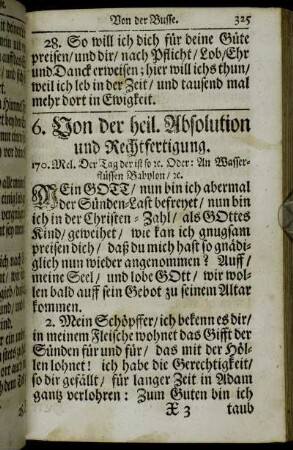 Von der Busse. 325
28. So will ich dich für deine Güte
preisen/ und dir/ nach Pflicht/ Lob/ Ehr
und Danck erweisen; hier will ichs thun/
weil ich leb in der Zeit/ und tausend mal
mehr dort in Ewigkeit.
6. Von der heil. Absolution
und Rechtfertigung.
170. Mel. Der Tag der ist so ꝛc. Oder: An Wasser-
flüssen Babylon/ ꝛc.
MEin GOTT/ nun bin ich abermal
der Sünden-Last befreyet/ nun bin
ich in der Christen-Zahl/ als GOttes
Kind/ geweihet/ wie kan ich gnugsam
preisen dich/ daß du mich hast so gnädig-
lich nun wieder angenommen? Auff/
meine Seel/ und lobe GOtt/ wir wol-
len bald auff sein Gebot zu seinem Altar
kommen.
2. Mein Schöpffer/ ich bekenn es dir/
in meinem Fleische wohnet das Gifft der
Sünden für und für/ das mit der Höl-
len lohnet! ich habe die Gerechtigkeit/
so dir gefällt/ für langer Zeit in Adam
gantz verlohren: Zum Guten bin ich
X 3 taub